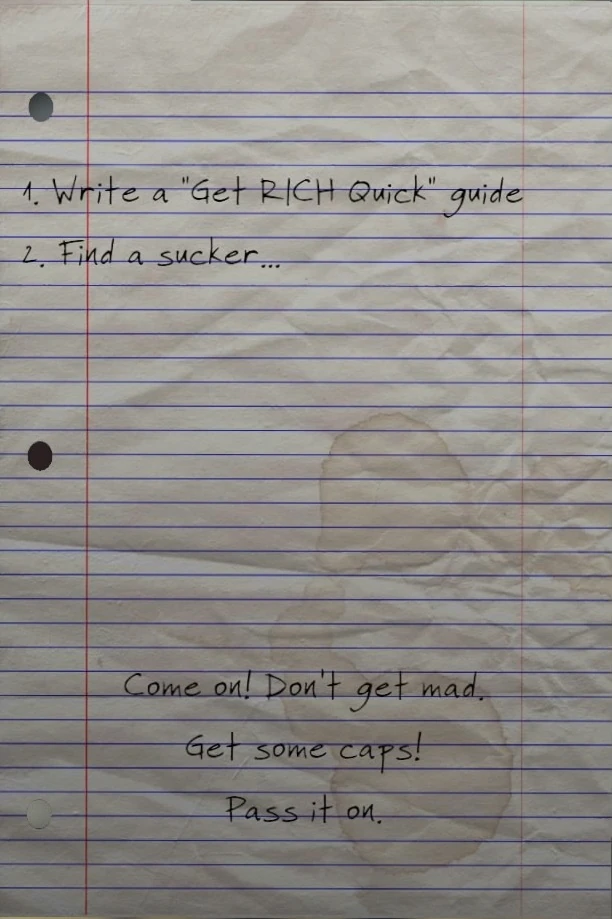 1. Write a "Get RICH Quick" guide
2. Find a sucker...
Come on! Don't get mad.
Get some caps!
Pass it on.